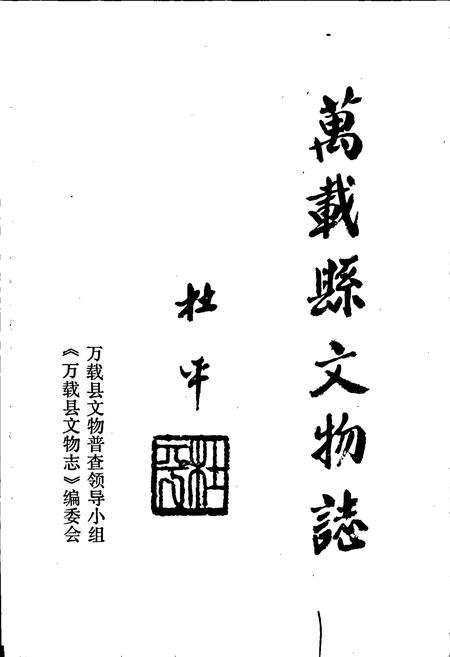 萬載縣文物誌
杜平
杜平
万载县文物普查领导小组
《万载县文物志》编委会